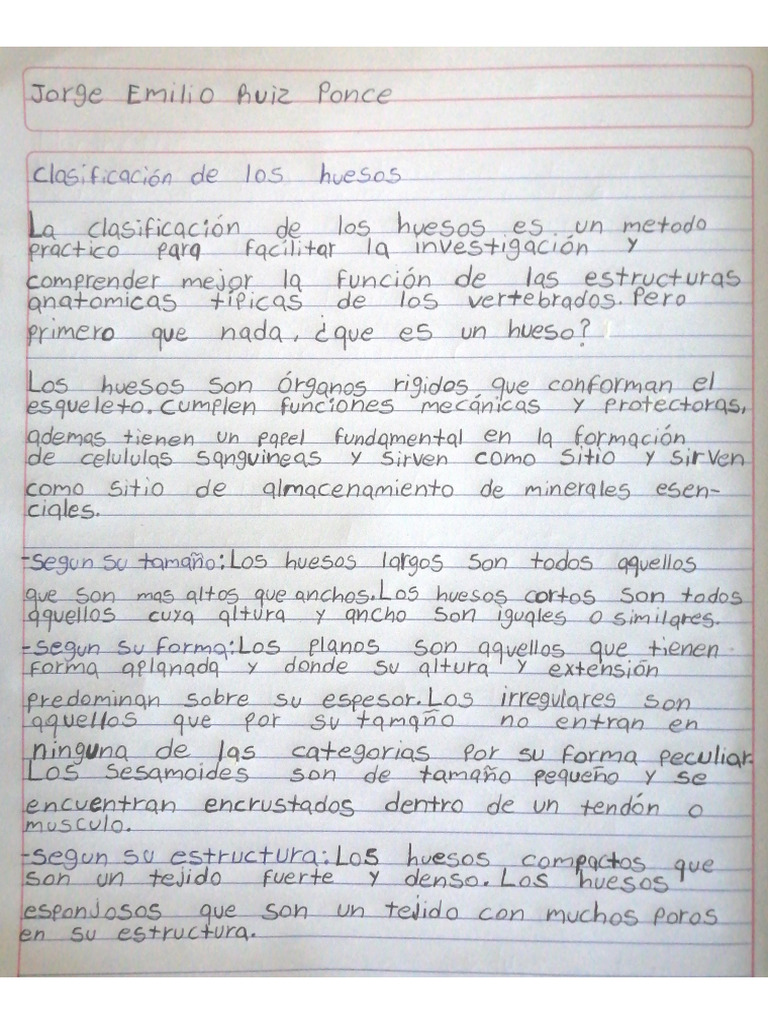 Jorge Emilio Ruiz Ponce
Clasificación de los huesos
La clasificación de los huesos es un metodo
practico para facilitar la investigación y
comprender mejor la función de las estructuras
anatomicas típicas de los vertebrados. Pero
primero que nada, ¿que es un hueso?
Los huesos son órganos rigidos que conforman el
esqueleto. Cumplen funciones mecánicas y protectoras,
ademas tienen un papel fundamental en la formación
de celululas sanguineas y sirven como sitio y sirven
como sitio de almacenamiento de minerales esen-
ciales.
-Segun su tamaño: Los huesos largos son todos aquellos
que son mas altos que anchos. Los huesos cortos son todos
aquellos cuya altura y ancho son iguales o similares.
-Segun su forma: Los planos son aquellos que tienen
forma aplanada y donde su altura y extensión
predominan sobre su espesor. Los irregulares son
aquellos que por su tamaño no entran en
ninguna de las categorias por su forma peculiar.
Los sesamoides son de tamaño pequeño y se
encuentran encrustados dentro de un tendón o
musculo.
-Segun su estructura: Los huesos compactos que
son un tejido fuerte y denso. Los huesos
esponjosos que son un tejido con muchos poros
en su estructura.